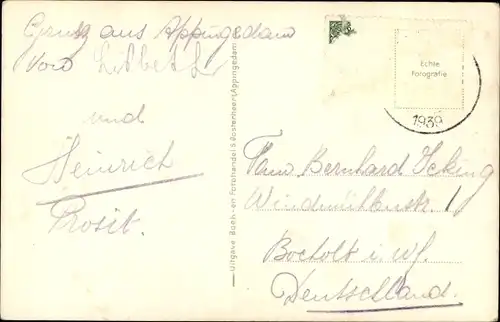 Gruß aus Appingedam
von Lisbeth
und
Heinrich
Prosit.
Uitgave Boek- en Fotohandel S. Oostenheert Appingedam
Echte
Fotografie
1939
Fam Bernhard Icking
Windmühlenstr. 1
Bocholt i. W.
Deutschland.